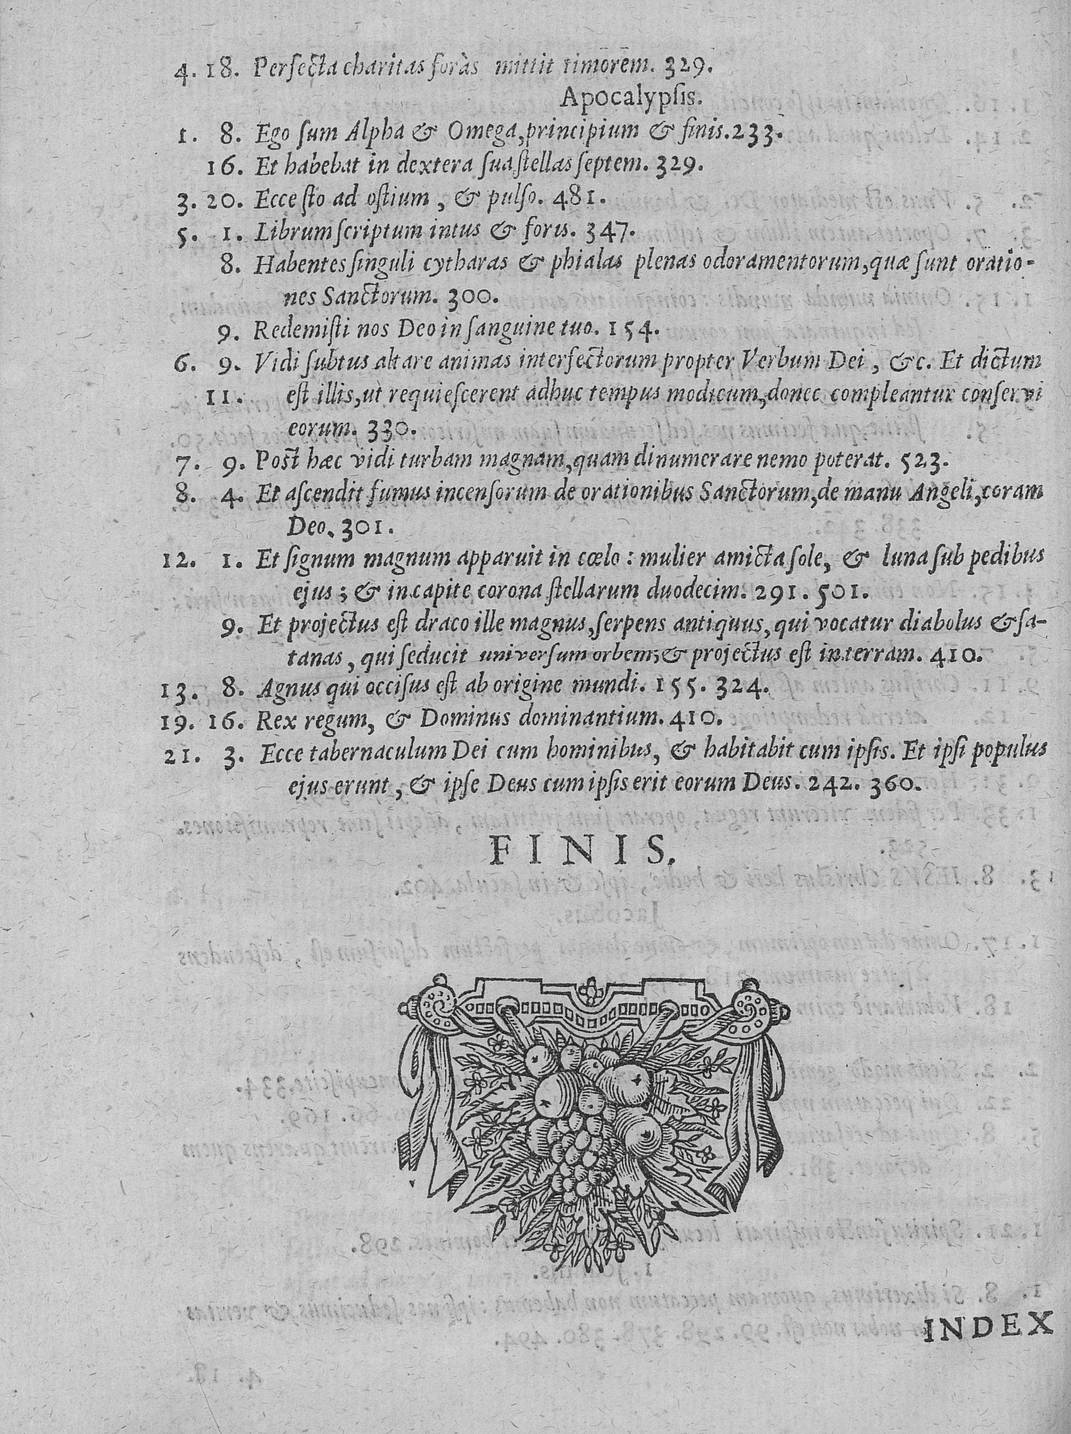 4. 18. Perfecta charitas foràs mittit timorem. 329.
Apocalypsis.
1. 8. Ego sum Alpha & Omega, principium & finis. 233.
16. Et habebat in dextera sua stellas septem. 329.
3. 20. Ecce sto ad ostium, & pulso. 481.
5. 1. Librum scriptum intus & foris. 347.
8. Habentes singuli cytharas & phialas plenas odoramentorum, quæ sunt oratio-
nes Sanctorum. 300.
9. Redemisti nos Deo in sanguine tuo. 154.
6. 9. Vidi subtus altare animas interfectorum propter Verbum Dei, &c. Et dictum
11. est illis, ut requiescerent adhuc tempus modicum, donec compleantur conservi
eorum. 330.
7. 9. Post hæc vidi turbam magnam, quam dinumerare nemo poterat. 523.
8. 4. Et ascendit fumus incensorum de orationibus Sanctorum, de manu Angeli, coram
Deo. 301.
12. 1. Et signum magnum apparuit in cœlo : mulier amicta sole, & luna sub pedibus
ejus ; & in capite corona stellarum duodecim. 291. 501.
9. Et projectus est draco ille magnus, serpens antiquus, qui vocatur diabolus & sa-
tanas, qui seducit universum orbem; & projectus est in terram. 410.
13. 8. Agnus qui occisus est ab origine mundi. 155. 324.
19. 16. Rex regum, & Dominus dominantium. 410.
21. 3. Ecce tabernaculum Dei cum hominibus, & habitabit cum ipsis. Et ipsi populus
ejus erunt, & ipse Deus cum ipsis erit eorum Deus. 242. 360.
FINIS.
INDEX